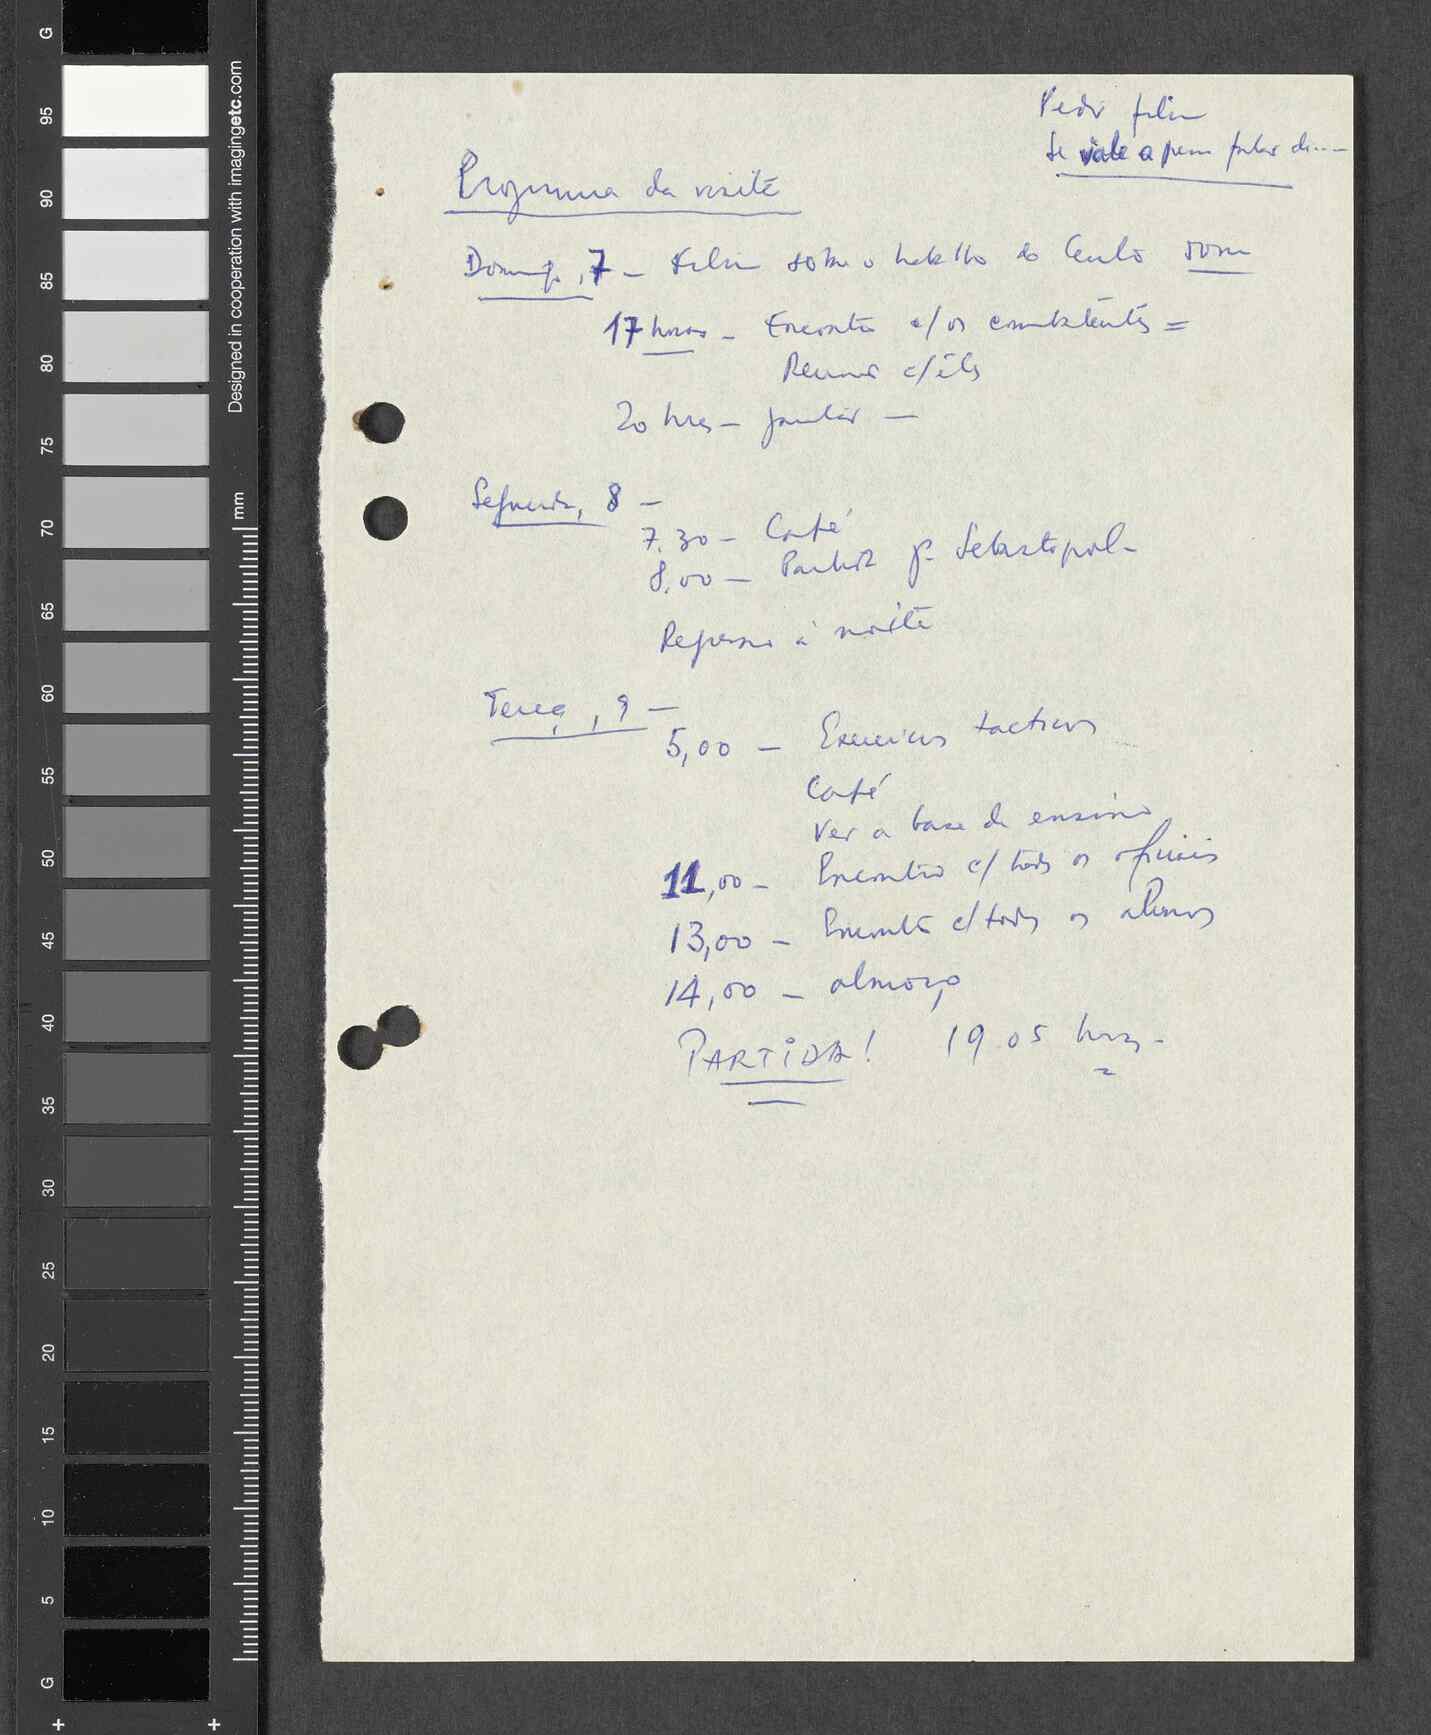 Pedir filme
Se vale a pena falar de....
Programa da visita
Domingo, 7 - Filme sobre o trabalho do Centro
17 horas - Encontro c/ os combatentes =
Reunião c/ êles
20 hres - jantar -
Segunda, 8 -
7.30 - Café
8.00 - Partida p. Sebastopol -
Regresso à noite
Terça, 9 -
5,00 - Exercícios tacticos
Café
Ver a base de ensino
11,00 - Encontro c/ todos os oficiais
13,00 - Encontro c/ todos os alunos
14,00 - almoço
PARTIDA! 19.05 hras -
Designed in cooperation with imagingetc.com
mm
G
95
90
85
80
75
70
65
60
55
50
45
40
35
30
25
20
15
10
5
G